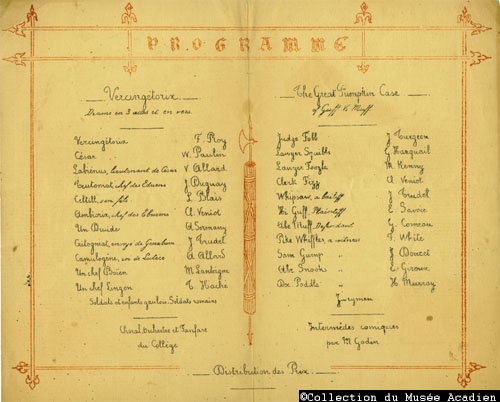 PROGRAMME
Vercingétorix
Drame en 3 actes et en vers
Vercingétorix F. Roy
César W. Paulin
Labiénus, lieutenant de César V. Allard
chef des Eduens J. Duguay
son fils L. Blais
Ambiorix, chef des Eburons A. Veniot
Un Druide A. Sormany
J. Trudel
A. Allard
Un chef M. Lantaigne
Un chef Lingon T. Haché
Soldats et enfants gaulois, Soldats romains
Choral, Orchestre et Fanfare
du Collège
The Great Pumpkin Case
of Guff v. Muff
Judge Fell J. Turgeon
Lawyer Squills G. Harquail
Lawyer Foozle M. Kenny
Clerk Fizz A. Veniot
Whipsaw, a bailiff J. Trudel
Hi Guff, Plaintiff E. Savoie
Abe Muff, Defendant G. Comeau
Pete Whiffler, a witness T. White
Sam Gump " J. Doucet
Abe Snooks " E. Giroux
Dr. Peddle " H. Murray
Jurymen
Intermèdes comiques
par M. Godin
Distribution des Prix
©Collection du Musée Acadien